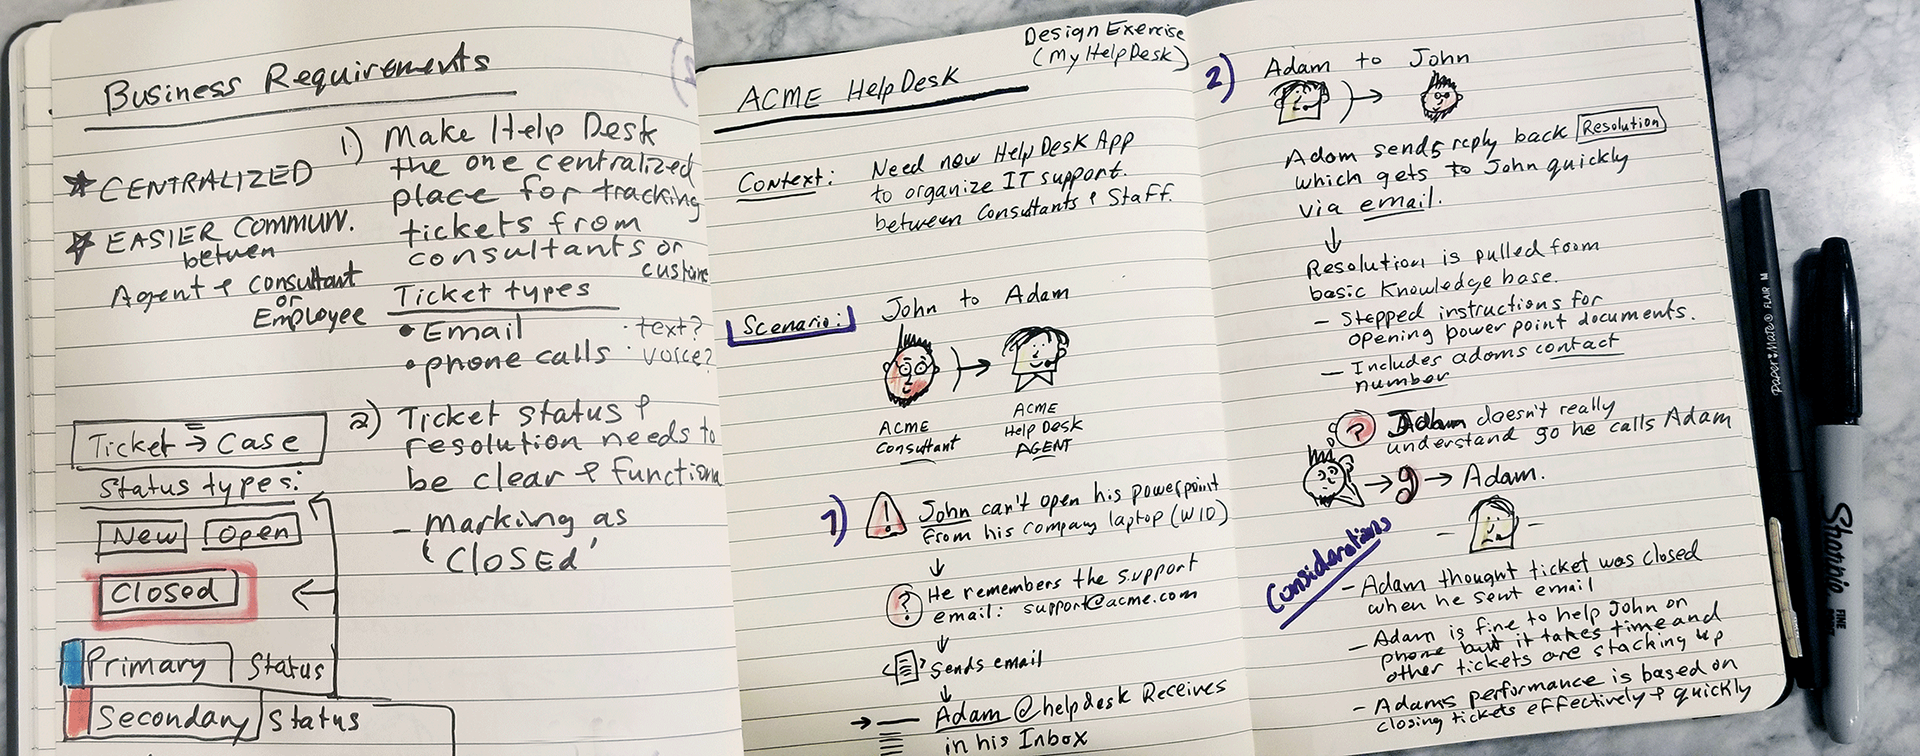 Business Requirements
★ CENTRALIZED
★ EASIER COMMUN.
between
Agent & consultant
or
Employee
1) Make Help Desk
the one centralized
place for tracking
tickets from
consultants or
custome
Ticket types
• Email · text?
• phone calls · voice?
Ticket → Case
Status types:
New Open
Closed
Primary Status
Secondary Status
2) Ticket status &
resolution needs to
be clear & functiona
- marking as
'ClOSEd'
Design Exercise
(My HelpDesk)
ACME HelpDesk
Context: Need new Help Desk App
to organize IT support.
between Consultants & Staff.
Scenario: John to Adam
ACME
Consultant
ACME
Help Desk
AGENT
1) ! John can't open his powerpoint
from his company laptop (W10)
↓
? He remembers the support
email: support@acme.com
↓
Sends email
↓
→ Adam @helpdesk Receives
in his Inbox
2) Adam to John
Adam sends reply back Resolution
which gets to John quickly
via email.
↓
Resolution is pulled from
basic Knowledge base.
- Stepped instructions for
opening power point documents.
- Includes adams contact
number
? Adam doesn't really
understand so he calls Adam
→ → Adam.
Considerations
- Adam thought ticket was closed
when he sent email
- Adam is fine to help John on
phone but it takes time and
other tickets are stacking up
- Adams performance is based on
closing tickets effectively & quickly
PAPER MATE FLAIR M
Sharpie
FINE